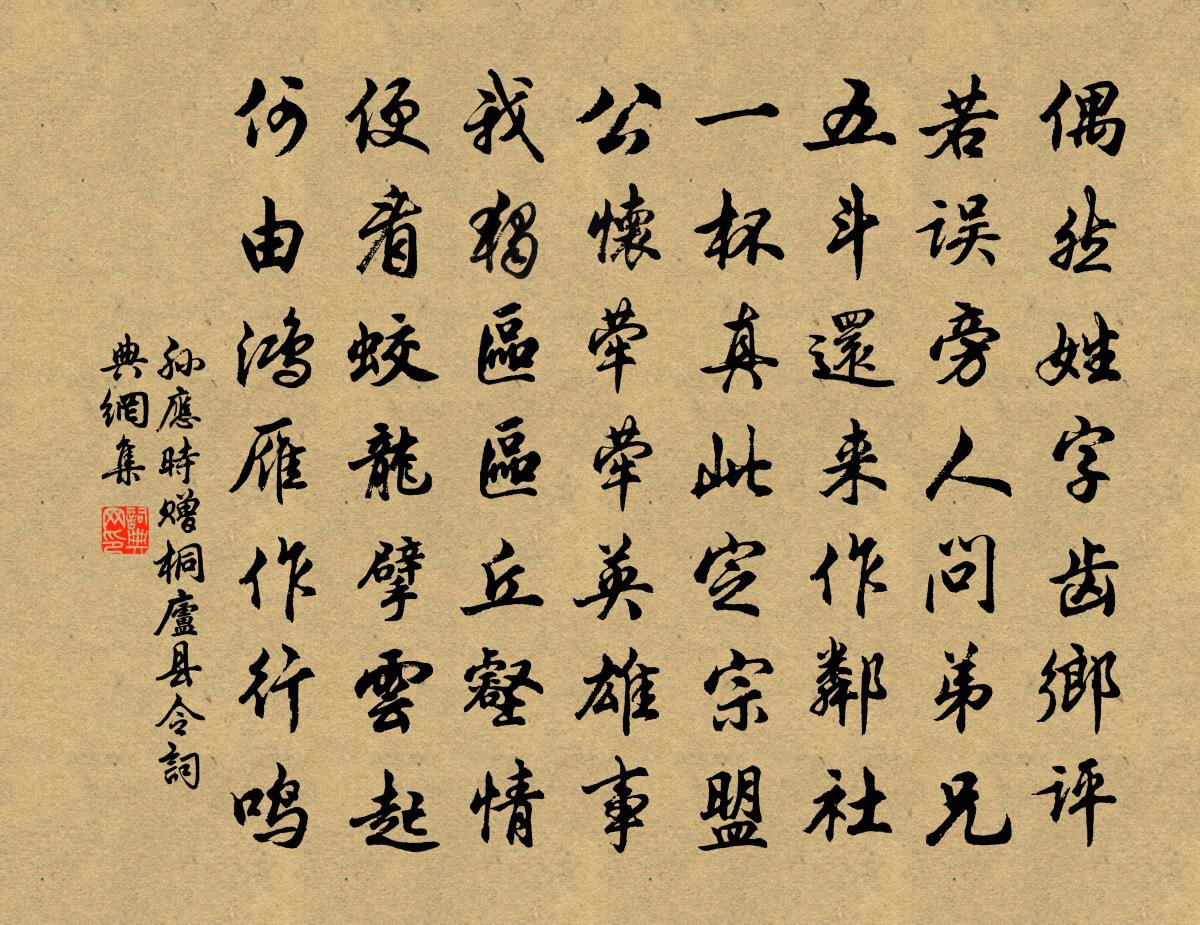 偶然姓字齿鄉评
若误旁人问弟兄
五斗還来作鄰社
一杯真此定宗盟
公懷犖犖英雄事
我獨區區丘壑情
便看蛟龍擘雲起
何由鴻雁作行鸣
孙應時赠桐廬县令詞
典網集
詞典网印